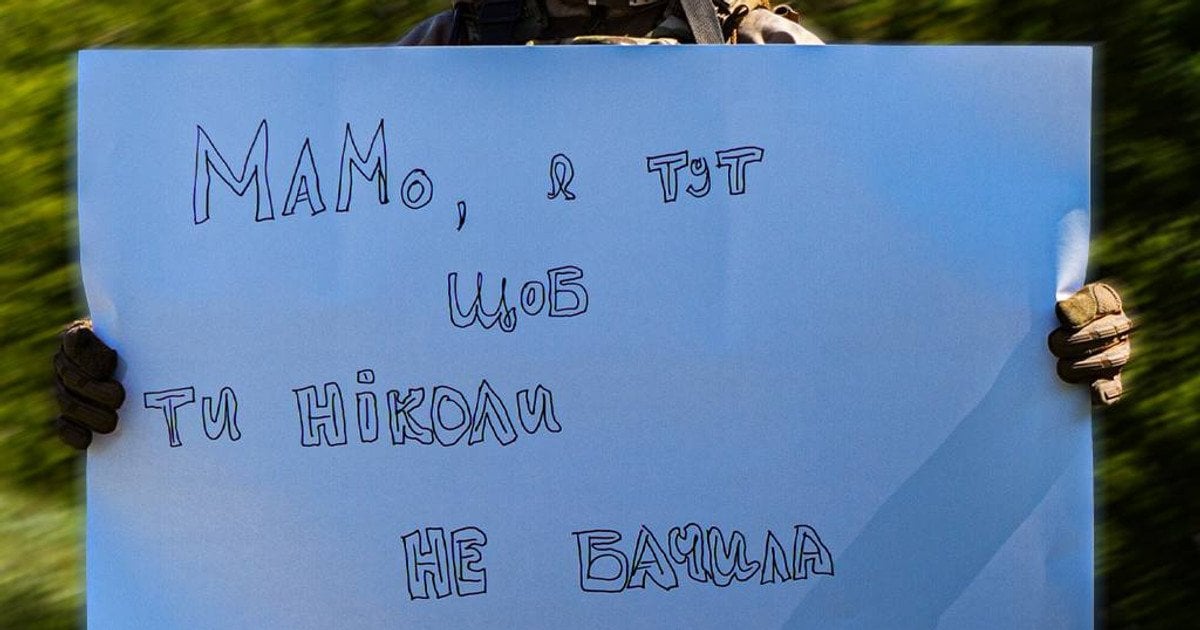 МАМО, я тут
щоб
ти ніколи
не бачила